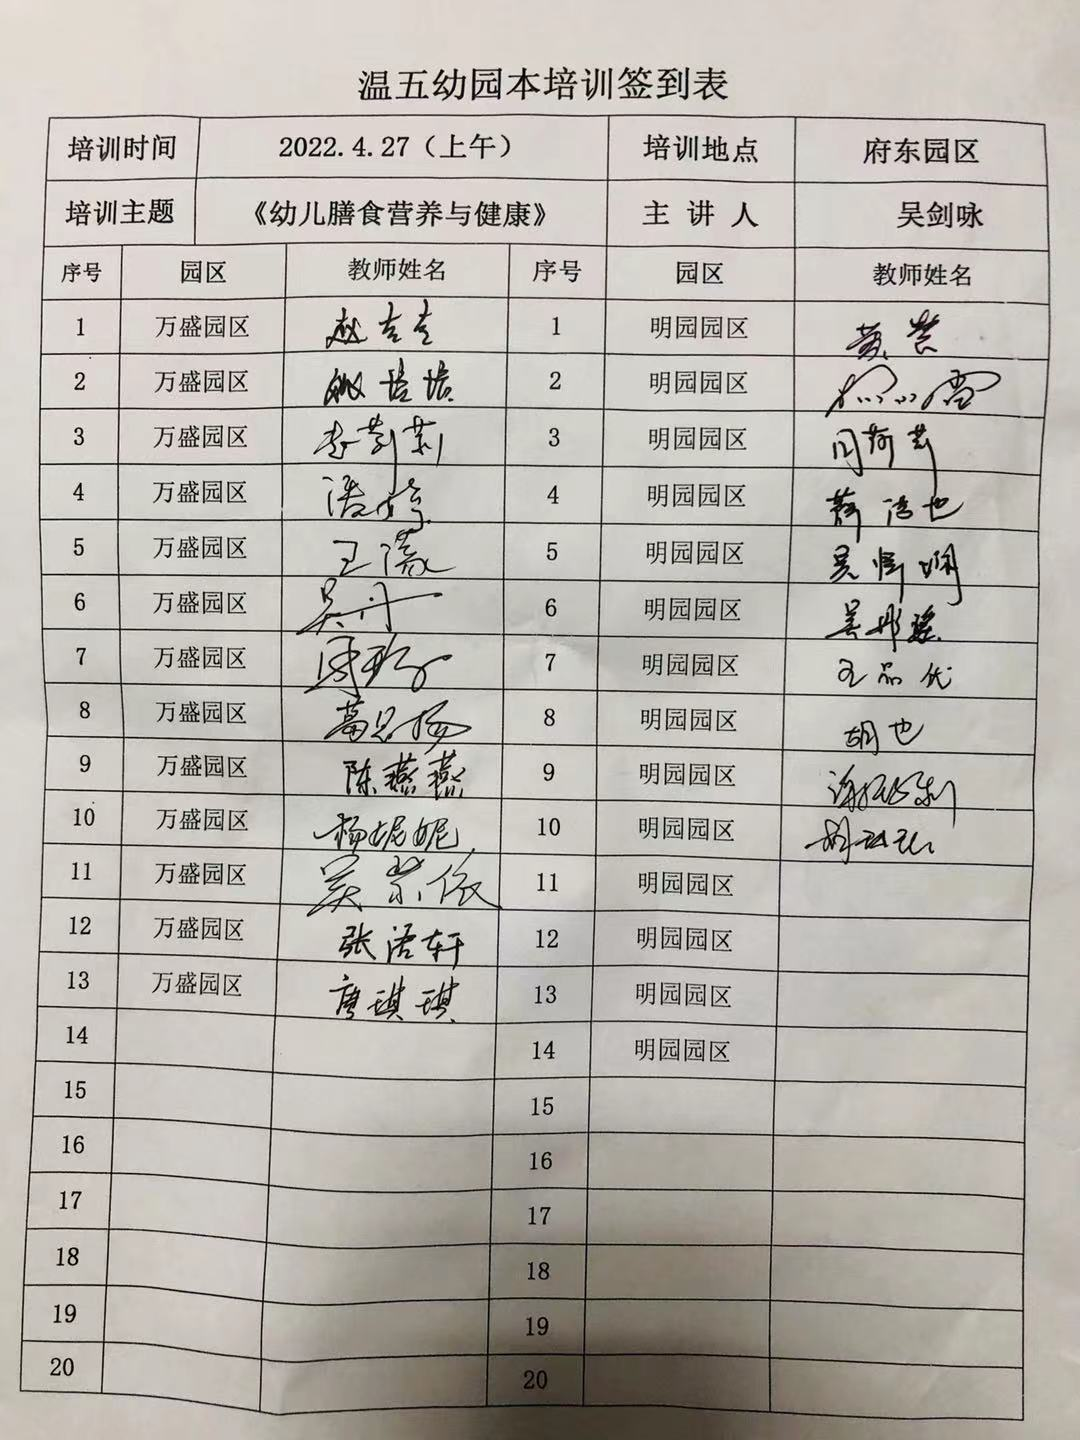 温五幼园本培训签到表
培训时间 2022.4.27（上午） 培训地点 府东园区
培训主题 《幼儿膳食营养与健康》 主讲人 吴剑咏
序号 园区 教师姓名 序号 园区 教师姓名
1 万盛园区 赵吉吉 1 明园园区
2 万盛园区 2 明园园区
3 万盛园区 李莉莉 3 明园园区 周荷莉
4 万盛园区 4 明园园区 薛洁也
5 万盛园区 5 明园园区
6 万盛园区 吴丹 6 明园园区
7 万盛园区 7 明园园区 王品优
8 万盛园区 葛思扬 8 明园园区 胡也
9 万盛园区 陈燕燕 9 明园园区
10 万盛园区 杨妮妮 10 明园园区
11 万盛园区 11 明园园区
12 万盛园区 张洛轩 12 明园园区
13 万盛园区 唐琪琪 13 明园园区
14 14 明园园区
15 15
16 16
17 17
18 18
19 19
20 20